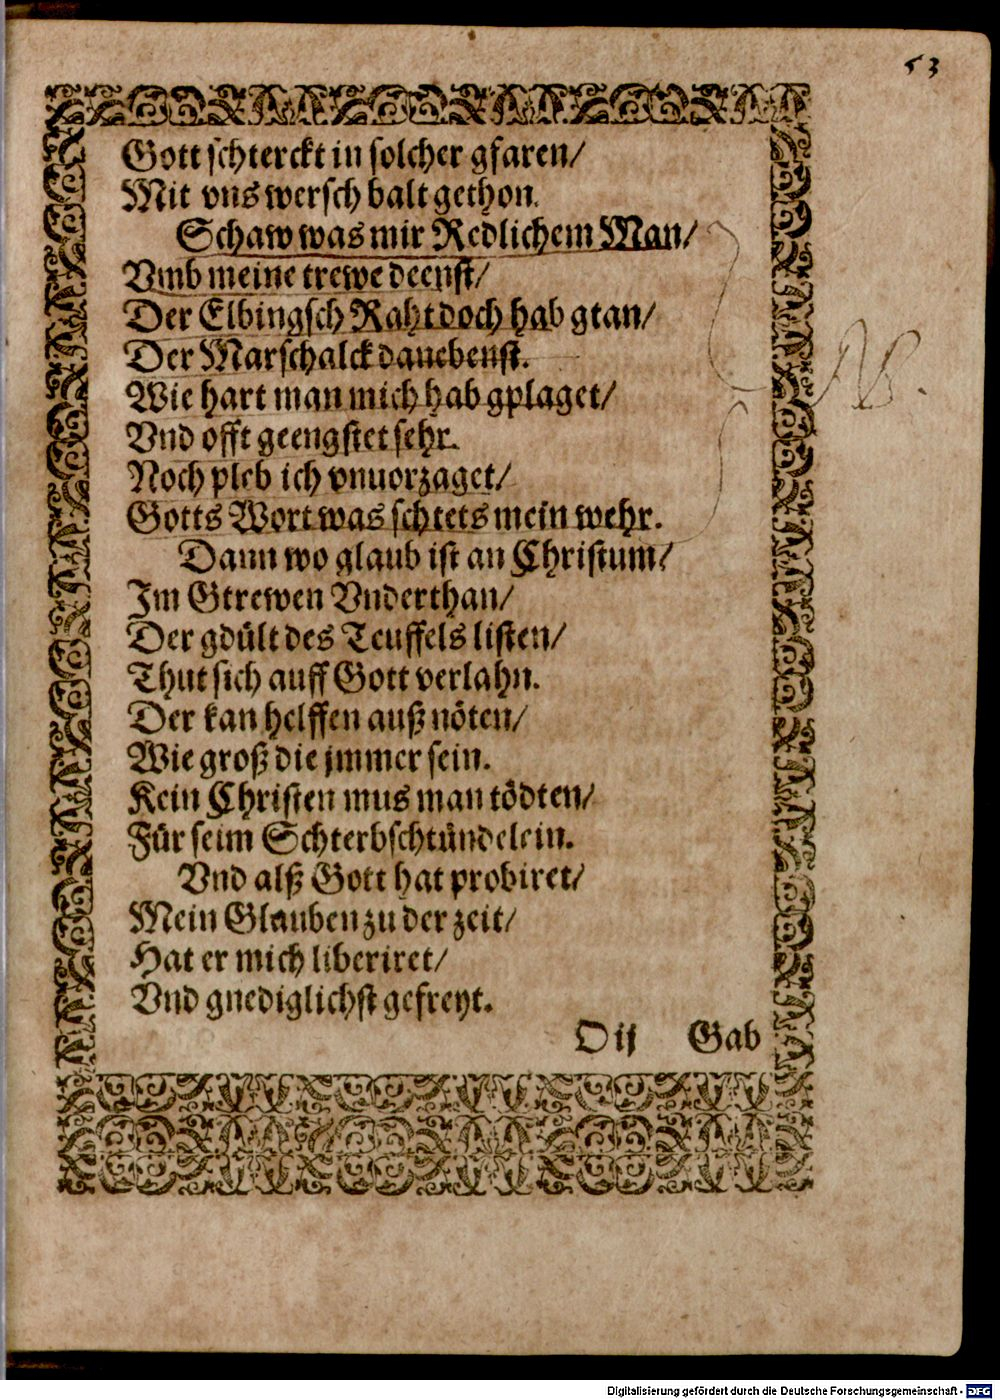 53
Gott schterckt in solcher gfaren/
Mit vns wersch balt gethon.
Schaw was mir Redlichem Man/
Vmb meine trewe deenst/
Der Elbingsch Raht doch hab gtan/
Der Marschalck danebenst.
Wie hart man mich hab gplaget/
Vnd offt geengstet sehr.
Noch pleb ich vnuorzaget/
Gotts Wort was schtets mein wehr.
NB.
Dann wo glaub ist an Christum/
Im Gtrewen Vnderthan/
Der gdült des Teuffels listen/
Thut sich auff Gott verlahn.
Der kan helffen auß nöten/
Wie groß die jmmer sein.
Kein Christen mus man tödten/
Für seim Schterbschtündelein.
Vnd alß Gott hat probiret/
Mein Glauben zu der zeit/
Hat er mich liberiret/
Vnd gnediglichst gefreyt.
O ij Gab
Digitalisierung gefördert durch die Deutsche Forschungsgemeinschaft - DFG